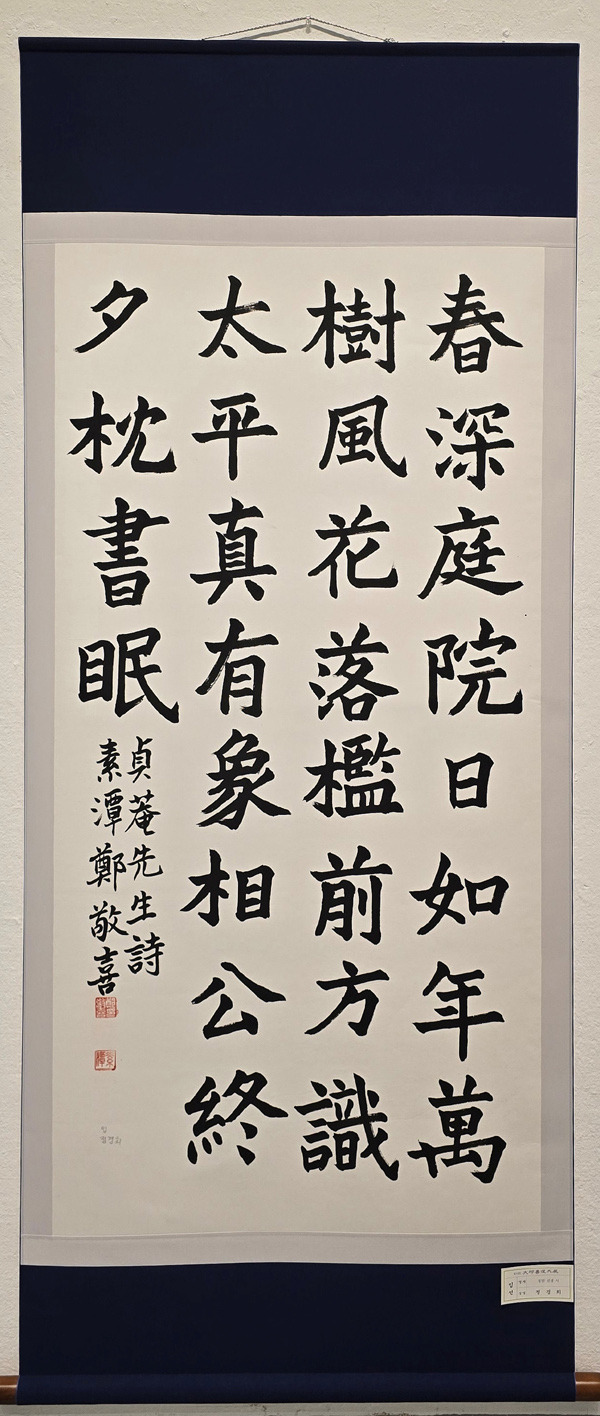 春深庭院日如年萬
樹風花落檻前方識
太平真有象相公終
夕枕書眠
貞菴先生詩
素潭鄭敬喜
입
정경희
입선
정경희